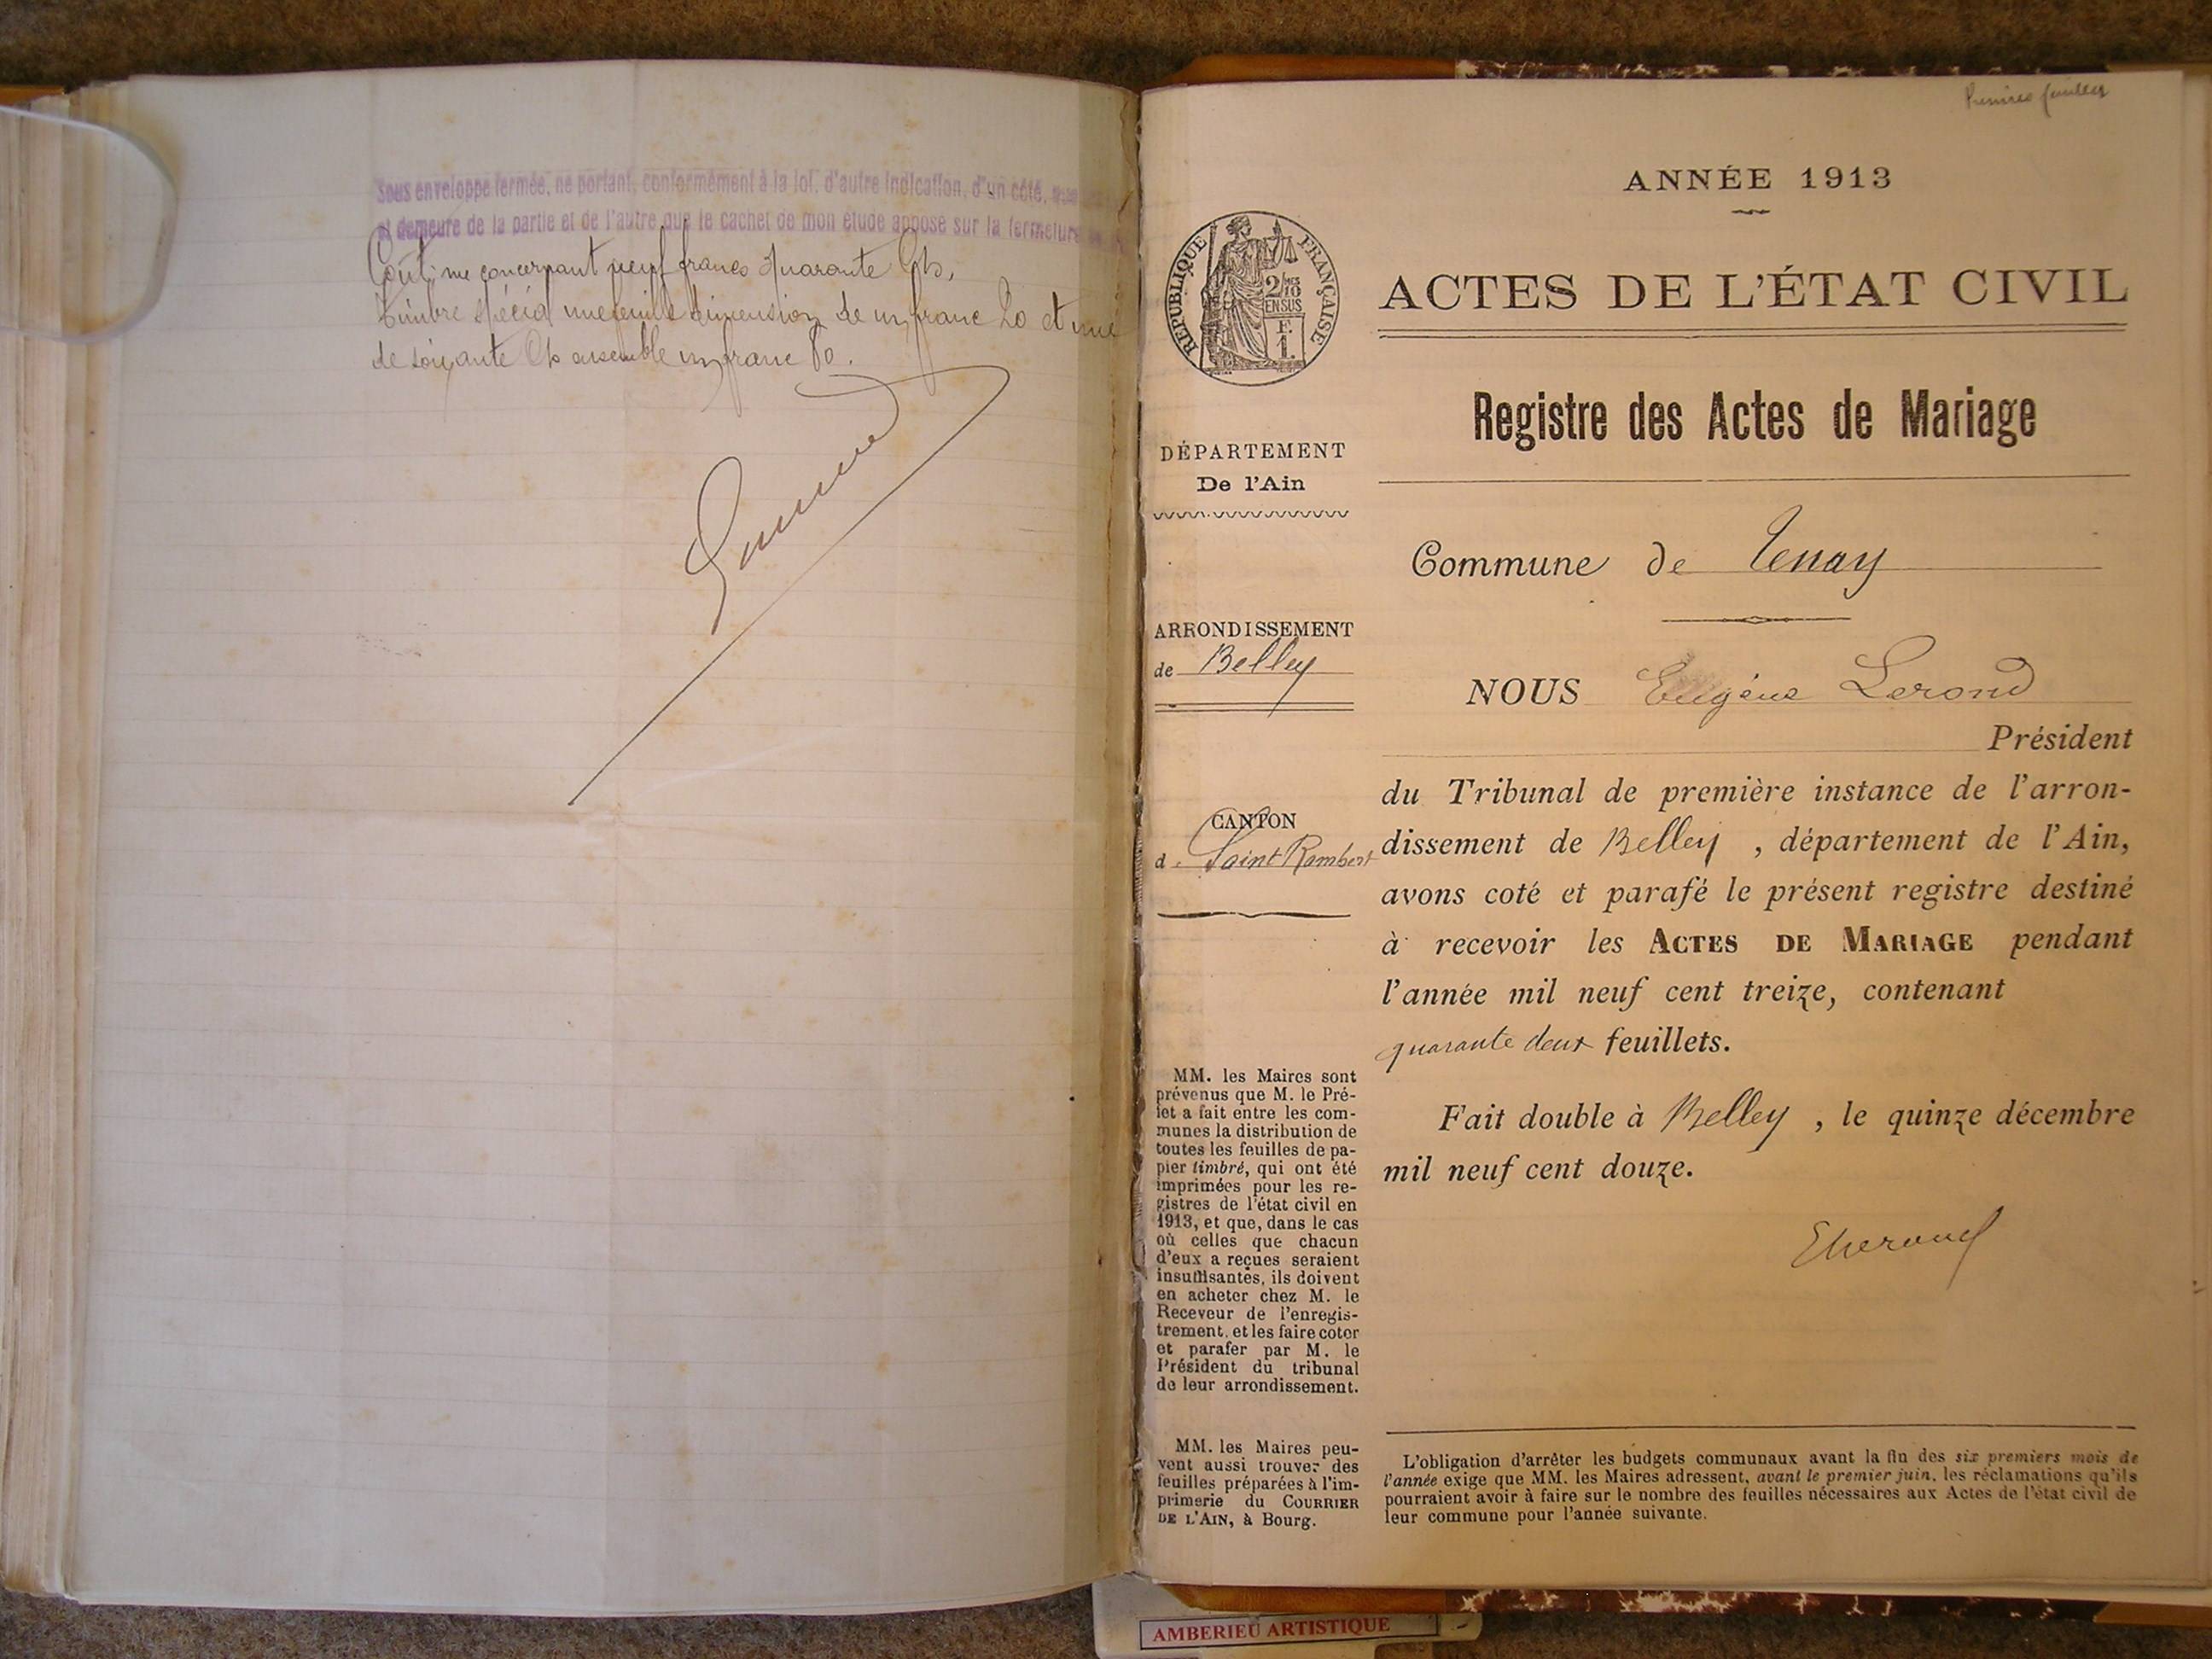 Sous enveloppe fermée, ne portant, conformément à la loi, d'autre indication, d'un côté,
et demeure de la partie et de l'autre que le cachet de mon étude apposé sur la fermeture
Coût: me concernant neuf francs quarante Cts,
timbre spécial une feuille dimension de un franc 20 et une
de soixante Cts ensemble un franc 80.
Premier feuillet
ANNÉE 1913
RÉPUBLIQUE FRANÇAISE
2/10
EN SUS
F.
1.
ACTES DE L'ÉTAT CIVIL
Registre des Actes de Mariage
DÉPARTEMENT
De l'Ain
ARRONDISSEMENT
de Belley
CANTON
d. Saint Rambert
MM. les Maires sont
prévenus que M. le Pré-
fet a fait entre les com-
munes la distribution de
toutes les feuilles de pa-
pier timbré, qui ont été
imprimées pour les re-
gistres de l'état civil en
1913, et que, dans le cas
où celles que chacun
d'eux a reçues seraient
insuffisantes, ils doivent
en acheter chez M. le
Receveur de l'enregis-
trement, et les faire coter
et parafer par M. le
Président du tribunal
de leur arrondissement.
MM. les Maires peu-
vent aussi trouver des
feuilles préparées à l'im-
primerie du COURRIER
DE L'AIN, à Bourg.
Commune de Tenay
NOUS Eugène Lerond
Président
du Tribunal de première instance de l'arron-
dissement de Belley , département de l'Ain,
avons coté et parafé le présent registre destiné
à recevoir les ACTES DE MARIAGE pendant
l'année mil neuf cent treize, contenant
quarante deux feuillets.
Fait double à Belley , le quinze décembre
mil neuf cent douze.
L'obligation d'arrêter les budgets communaux avant la fin des six premiers mois de
l'année exige que MM. les Maires adressent, avant le premier juin, les réclamations qu'ils
pourraient avoir à faire sur le nombre des feuilles nécessaires aux Actes de l'état civil de
leur commune pour l'année suivante.
AMBERIEU ARTISTIQUE